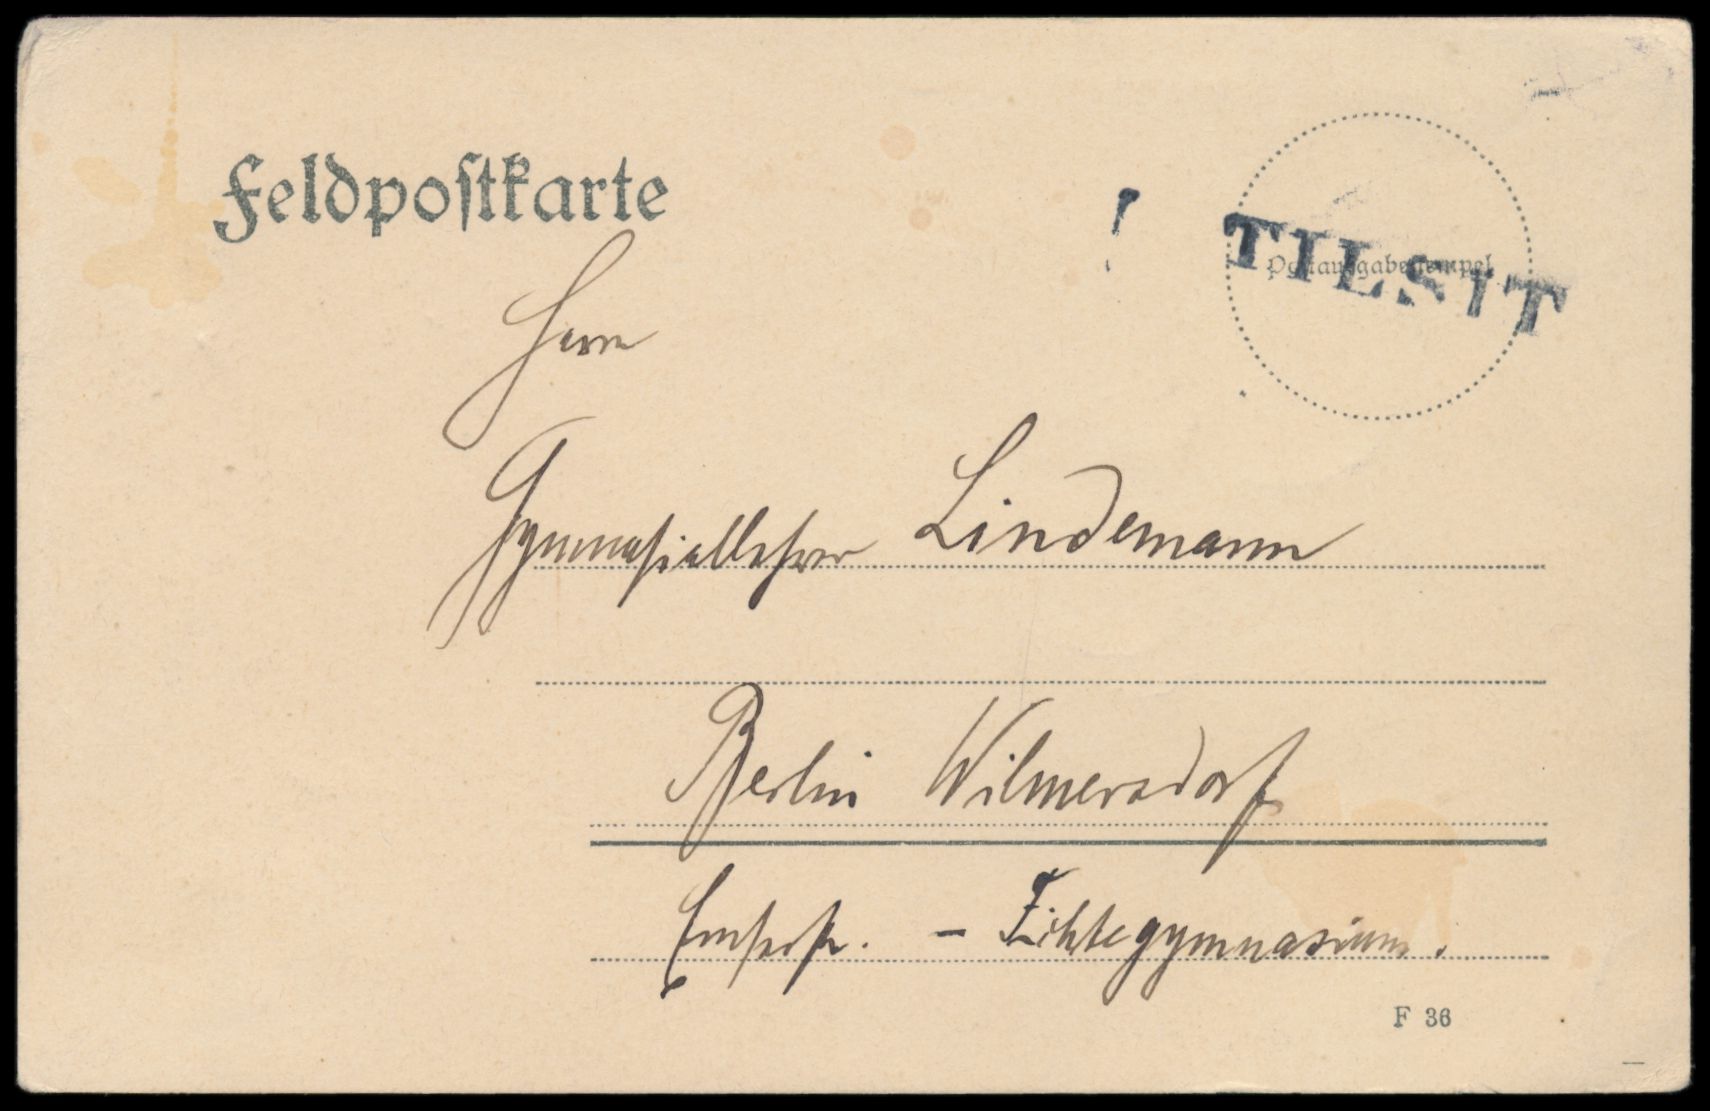 Feldpostkarte
TILSIT
Postausgabestempel
Herrn
Gymnasiallehrer Lindemann
Berlin Wilmersdorf
Emserstr. – Fichtegymnasium.
F 36